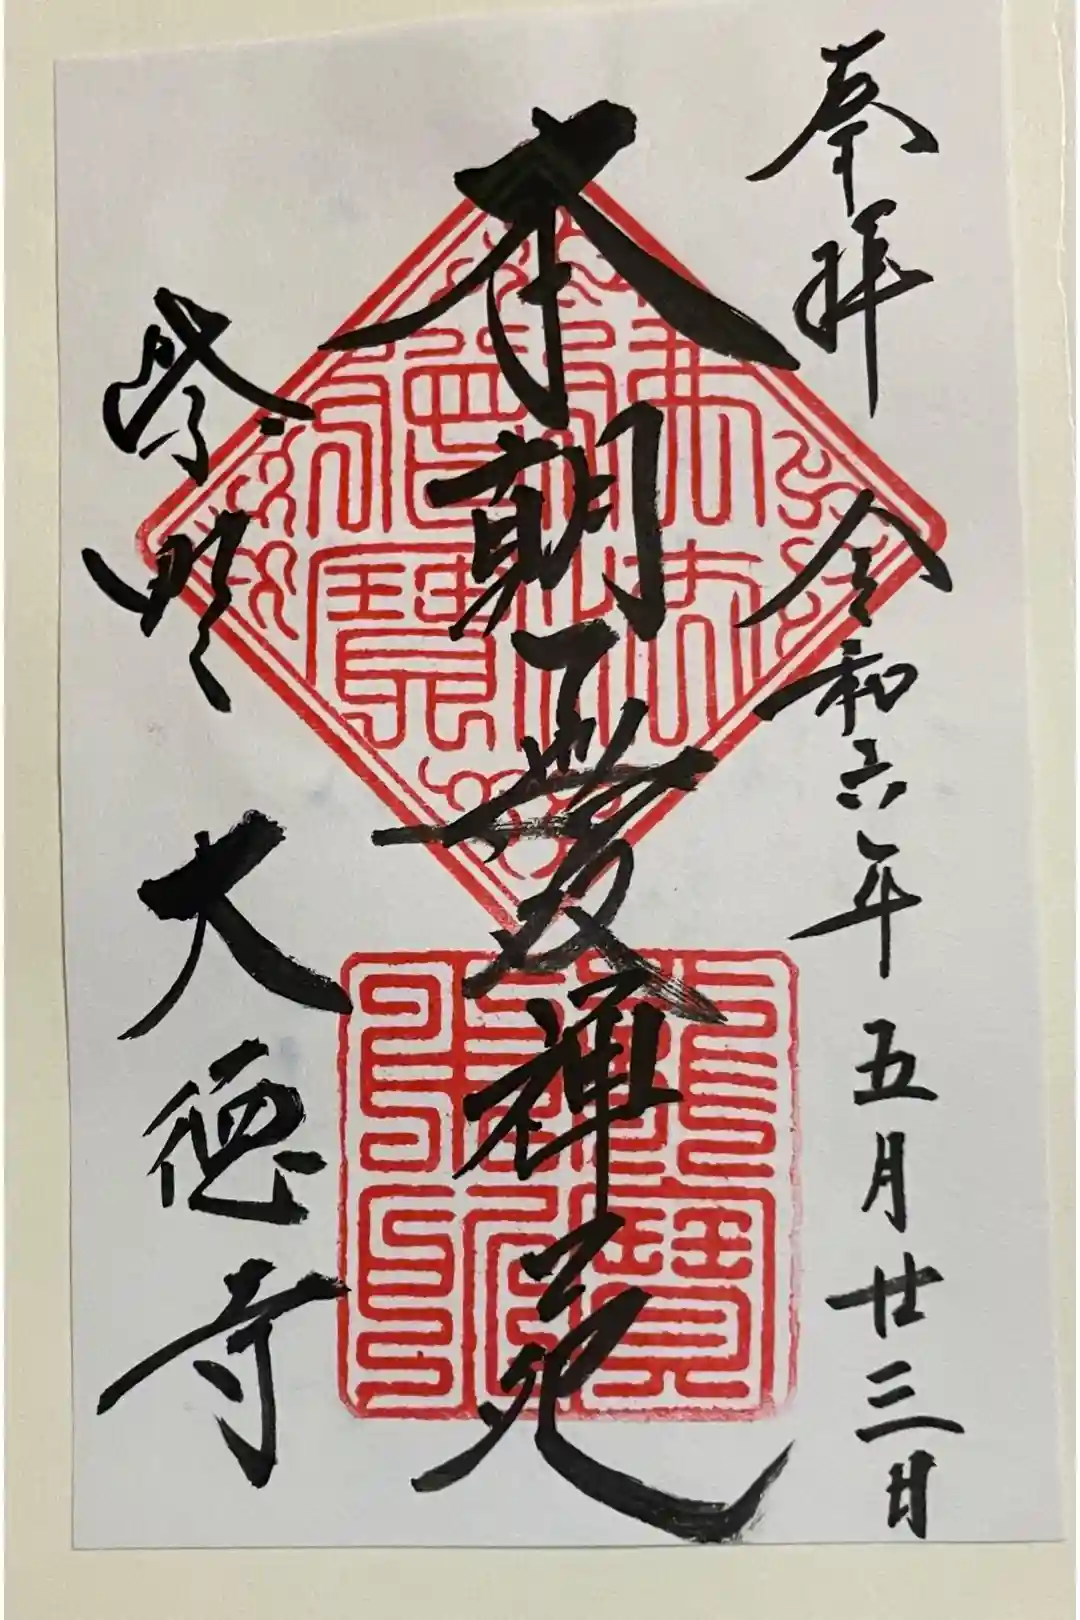 奉拝
令和六年五月廿三日
本朝無雙禅苑
紫野
大徳寺
佛法僧寶